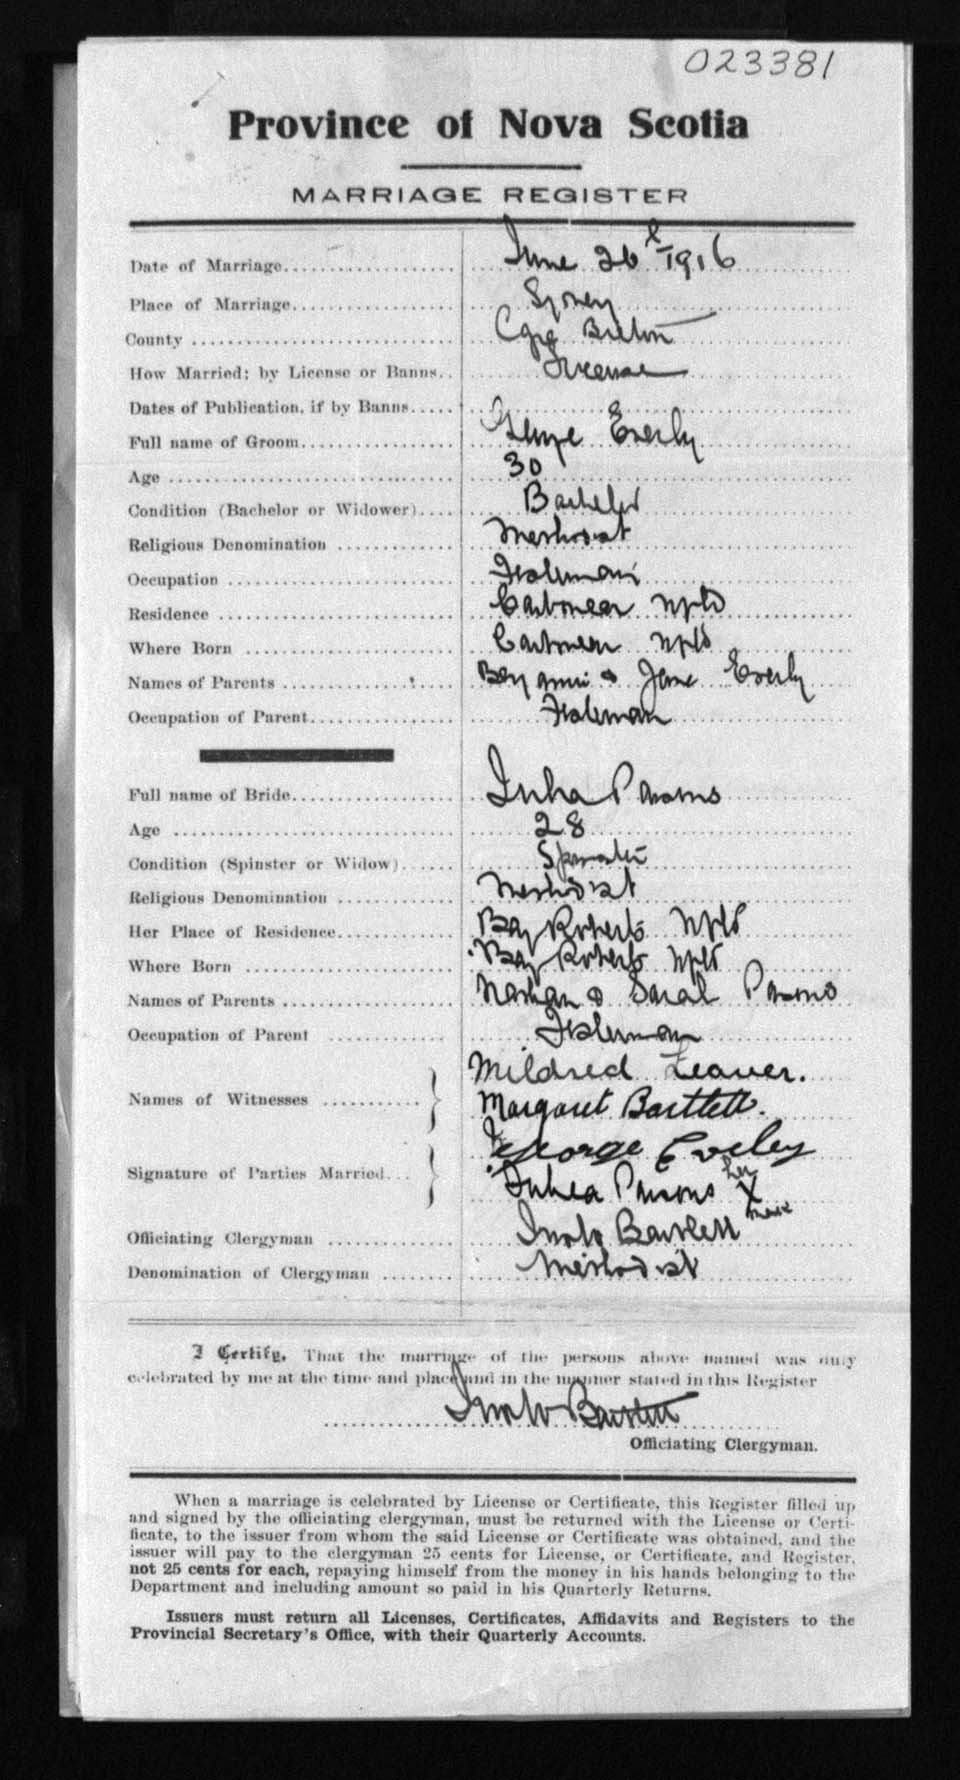 023381
Province of Nova Scotia
MARRIAGE REGISTER
Date of Marriage June 26 1916
Place of Marriage Sydney
County Cape Breton
How Married; by License or Banns License
Dates of Publication, if by Banns
Full name of Groom George Everly
Age 30
Condition (Bachelor or Widower) Bachelor
Religious Denomination Methodist
Occupation Fisherman
Residence Carbonear Nfld
Where Born Carbonear Nfld
Names of Parents Benjamin & Jane Everly
Occupation of Parent Fisherman
Full name of Bride Julia Parsons
Age 28
Condition (Spinster or Widow) Spinster
Religious Denomination Methodist
Her Place of Residence Bay Roberts Nfld
Where Born Bay Roberts Nfld
Names of Parents Nathan & Sarah Parsons
Occupation of Parent Fisherman
Mildred Leaver.
Names of Witnesses
Margaret Bartlett.
George Eveley
Signature of Parties Married
Julia Parsons her X mark
Officiating Clergyman Bartlett
Denomination of Clergyman Methodist
I Certify, That the marriage of the persons above named was duly
celebrated by me at the time and place and in the manner stated in this Register
Bartlett
Officiating Clergyman.
When a marriage is celebrated by License or Certificate, this Register filled up
and signed by the officiating clergyman, must be returned with the License or Certi-
ficate, to the issuer from whom the said License or Certificate was obtained, and the
issuer will pay to the clergyman 25 cents for License, or Certificate, and Register,
not 25 cents for each, repaying himself from the money in his hands belonging to the
Department and including amount so paid in his Quarterly Returns.
Issuers must return all Licenses, Certificates, Affidavits and Registers to the
Provincial Secretary's Office, with their Quarterly Accounts.